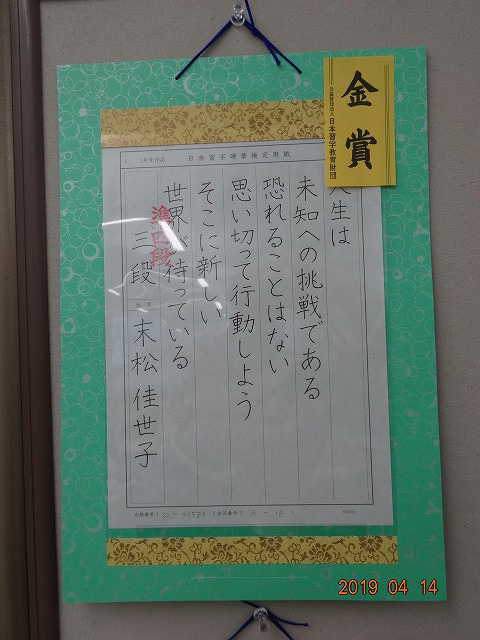 金賞
公益財団法人 日本習字教育財団
日本習字硬筆検定用紙
人生は
未知への挑戦である
恐れることはない
思い切って行動しよう
そこに新しい
世界が待っている
準四段
三段 末松佳世子
合格番号
出品番号
2019 04 14